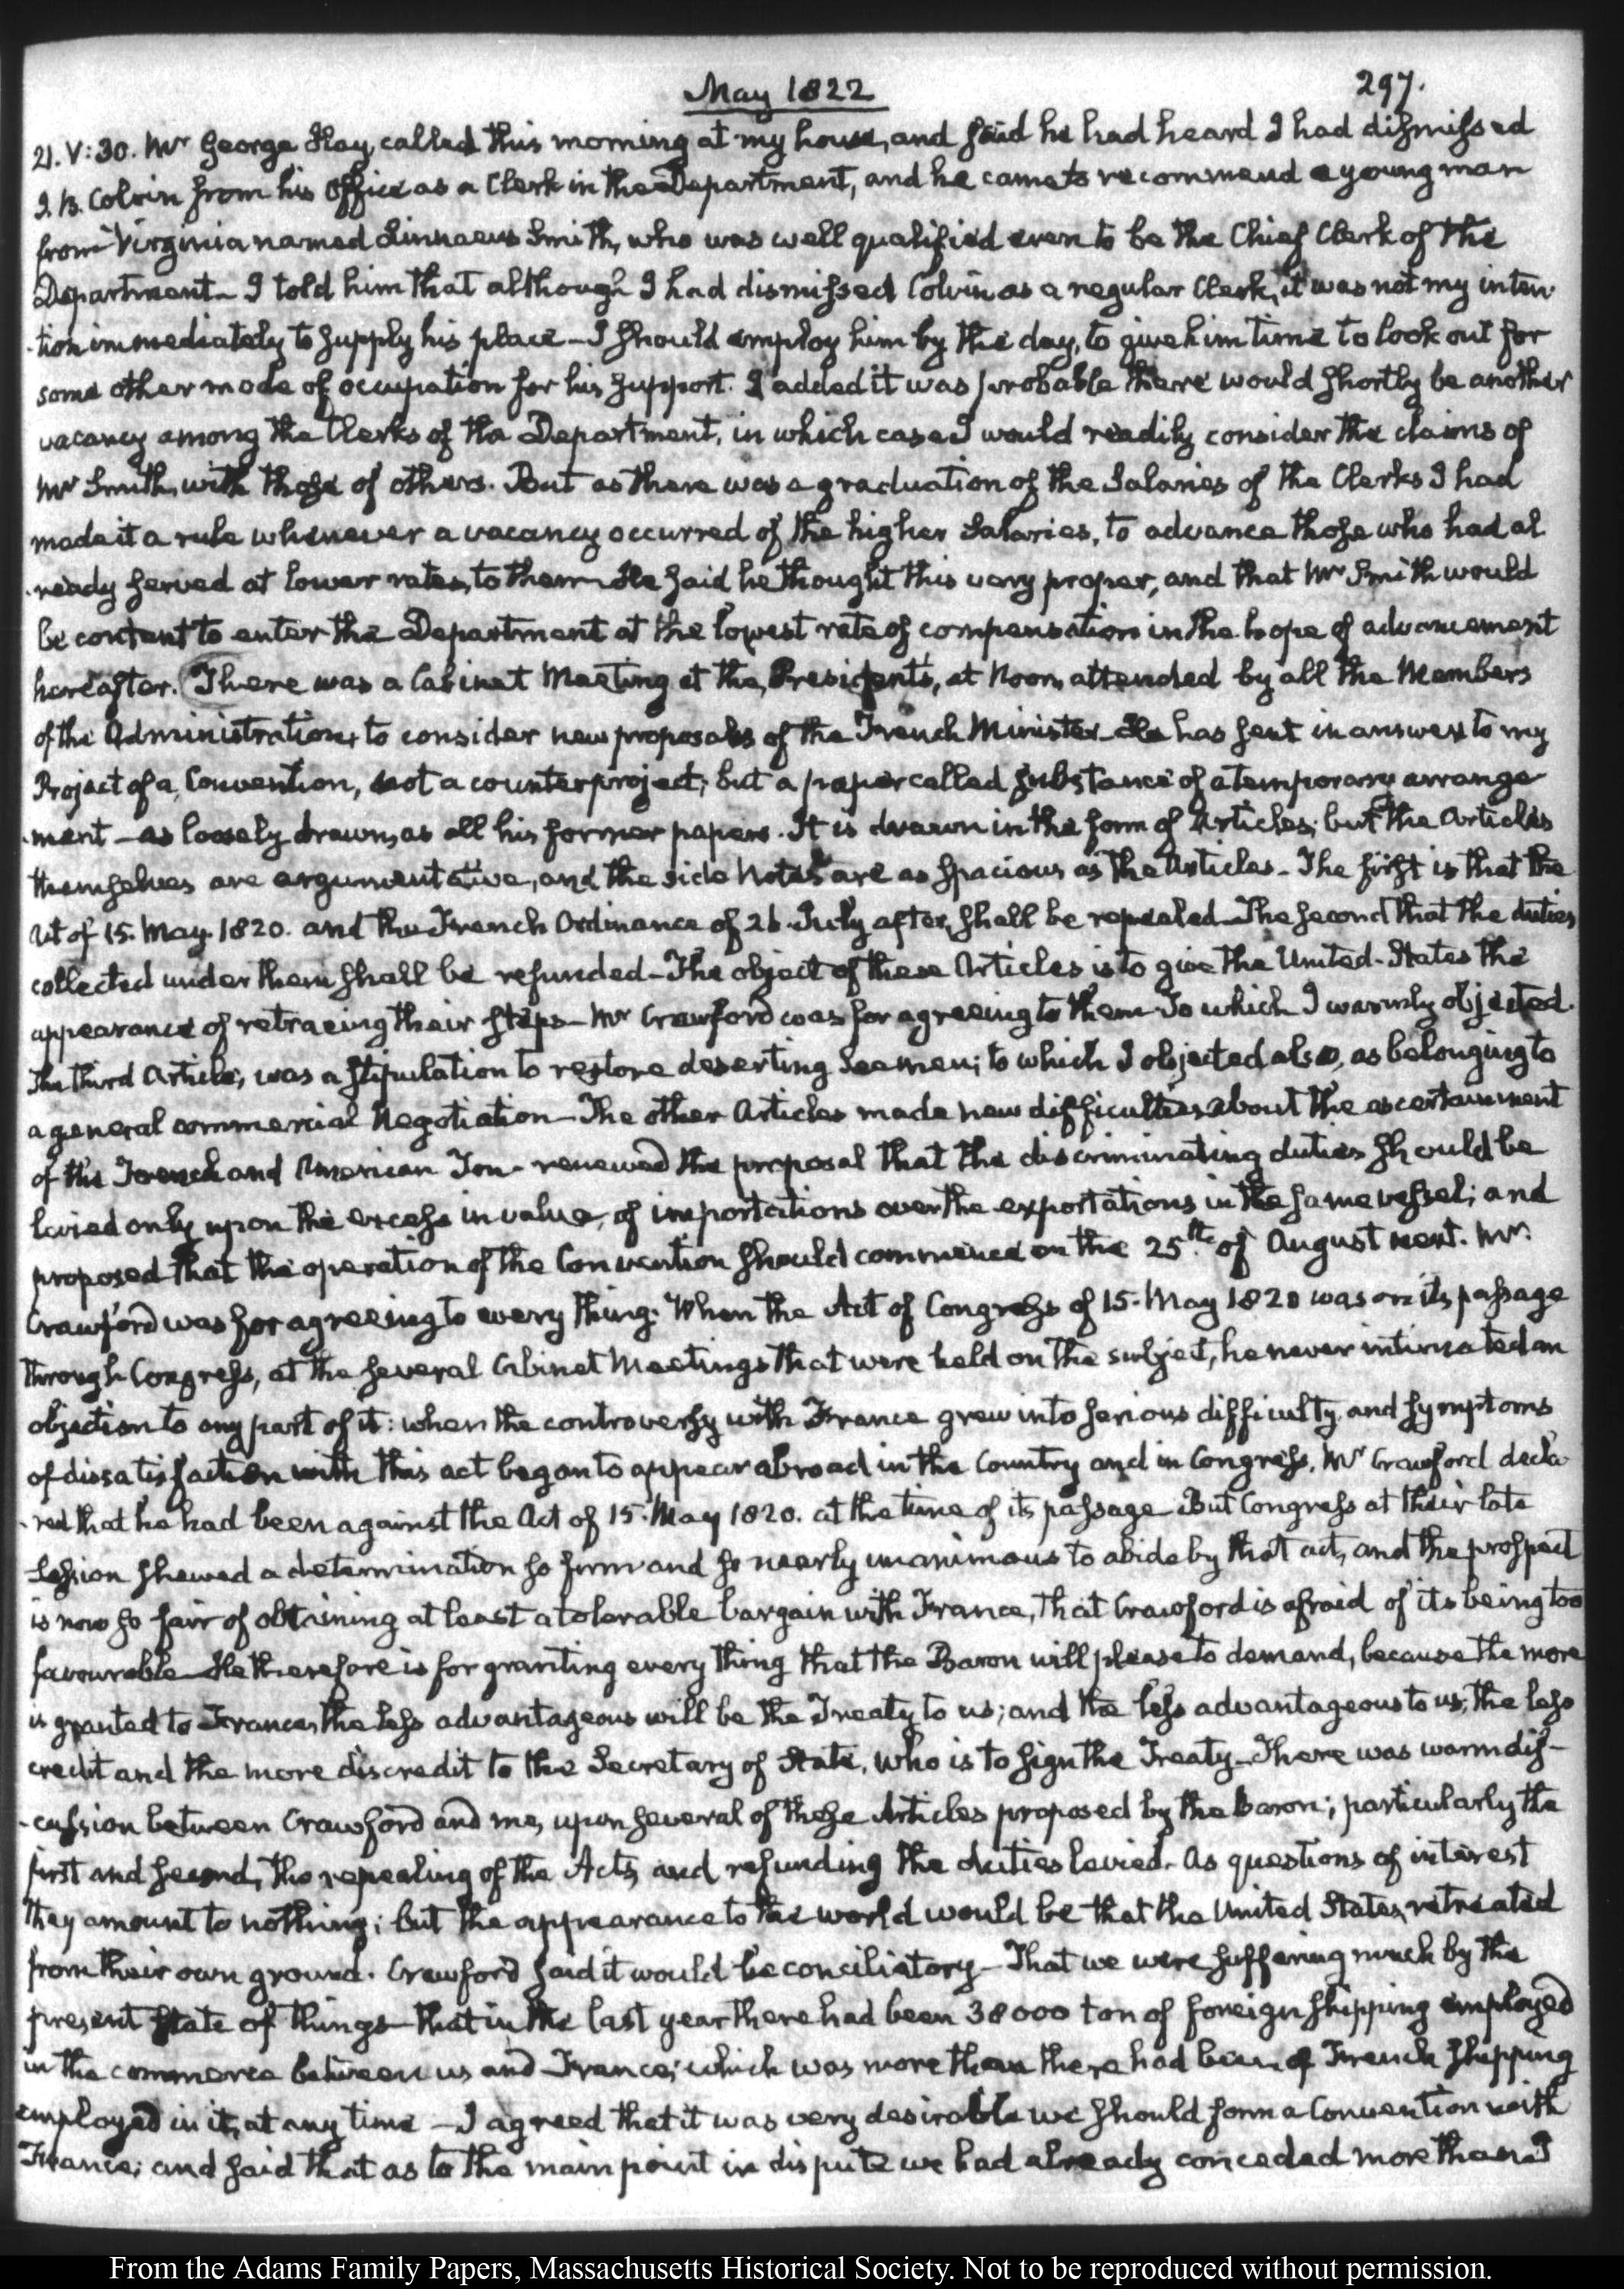 May 1822
297.
21. V:30. Mr George Hay, called this morning at my house, and said he had heard I had dismissed
J. B. Colvin from his Office as a Clerk in the Department, and he came to recommend a young man
from Virginia named Linnaeus Smith, who was well qualified even to be the Chief Clerk of the
Department— I told him that although I had dismissed Colvin as a regular Clerk, it was not my inten
-tion immediately to supply his place— I should employ him by the day, to give him time to look out for
some other mode of occupation for his support. I added it was probable there would shortly be another
vacancy among the Clerks of the Department, in which case I would readily consider the claims of
Mr Smith, with those of others. But as there was a graduation of the Salaries of the Clerks I had
made it a rule whenever a vacancy occurred of the higher Salaries, to advance those who had al
-ready served at lower rates, to them— He said he thought this very proper, and that Mr Smith would
be content to enter the Department at the lowest rate of compensation in the hope of advancement
hereafter. There was a Cabinet Meeting at the President's, at Noon, attended by all the Members
of the Administration, to consider new proposals of the French Minister— He has sent in answer to my
Project of a Convention, not a counter project; but a paper called substance of a temporary arrange
-ment— as loosely drawn, as all his former papers. It is drawn in the form of Articles; but the Articles
themselves are argumentative, and the side Notes are as spacious as the Articles— The first is that the
Act of 15. May. 1820. and the French Ordinance of 26. July after, shall be repealed— The second that the duties
collected under them shall be refunded— The object of these Articles is to give the United-States the
appearance of retracing their steps— Mr Crawford was for agreeing to them— To which I warmly objected.
The third Article, was a stipulation to restore deserting Seamen; to which I objected also, as belonging to
a general commercial Negotiation— The other Articles made new difficulties about the ascertainment
of the French and American Ton— renewed the proposal that the discriminating duties should be
levied only upon the excess in value, of importations over the exportations in the same vessel; and
proposed that the operation of the Convention should commence on the 25th of August next. Mr
Crawford was for agreeing to every thing. When the Act of Congress of 15. May 1820 was on its passage
through Congress, at the several Cabinet Meetings that were held on the subject, he never intimated an
objection to any part of it: when the controversy with France grew into serious difficulty, and symptoms
of dissatisfaction with this act began to appear abroad in the Country and in Congress, Mr Crawford decla
-red that he had been against the Act of 15. May 1820. at the time of its passage— But Congress at their late
Session shewed a determination so firm and so nearly unanimous to abide by that act, and the prospect
is now so fair of obtaining at least a tolerable bargain with France, that Crawford is afraid of its being too
favourable— He therefore is for granting every thing that the Baron will please to demand, because the more
is granted to France, the less advantageous will be the Treaty to us; and the less advantageous to us, the less
credit and the more discredit to the Secretary of State, who is to sign the Treaty— There was warm dis-
-cussion between Crawford and me, upon several of these Articles proposed by the Baron; particularly the
first and second, the repealing of the Acts, and refunding the duties levied. As questions of interest
they amount to nothing; but the appearance to the world would be that the United States, retreated
from their own ground. Crawford said it would be conciliatory— That we were suffering much by the
present state of things— that in the last year there had been 38000 ton of foreign shipping employed
in the commerce between us and France; which was more than there had been of French shipping
employed in it, at any time— I agreed that it was very desirable we should form a Convention with
France; and said that as to the main point in dispute we had already conceded more than I
From the Adams Family Papers, Massachusetts Historical Society. Not to be reproduced without permission.